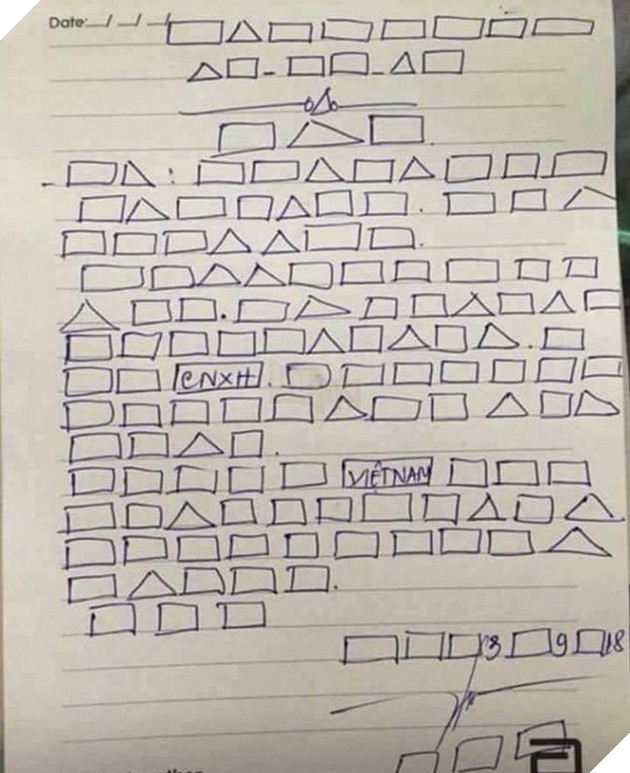 Date: / / /
CNXH
VIỆTNAM
3 9 18